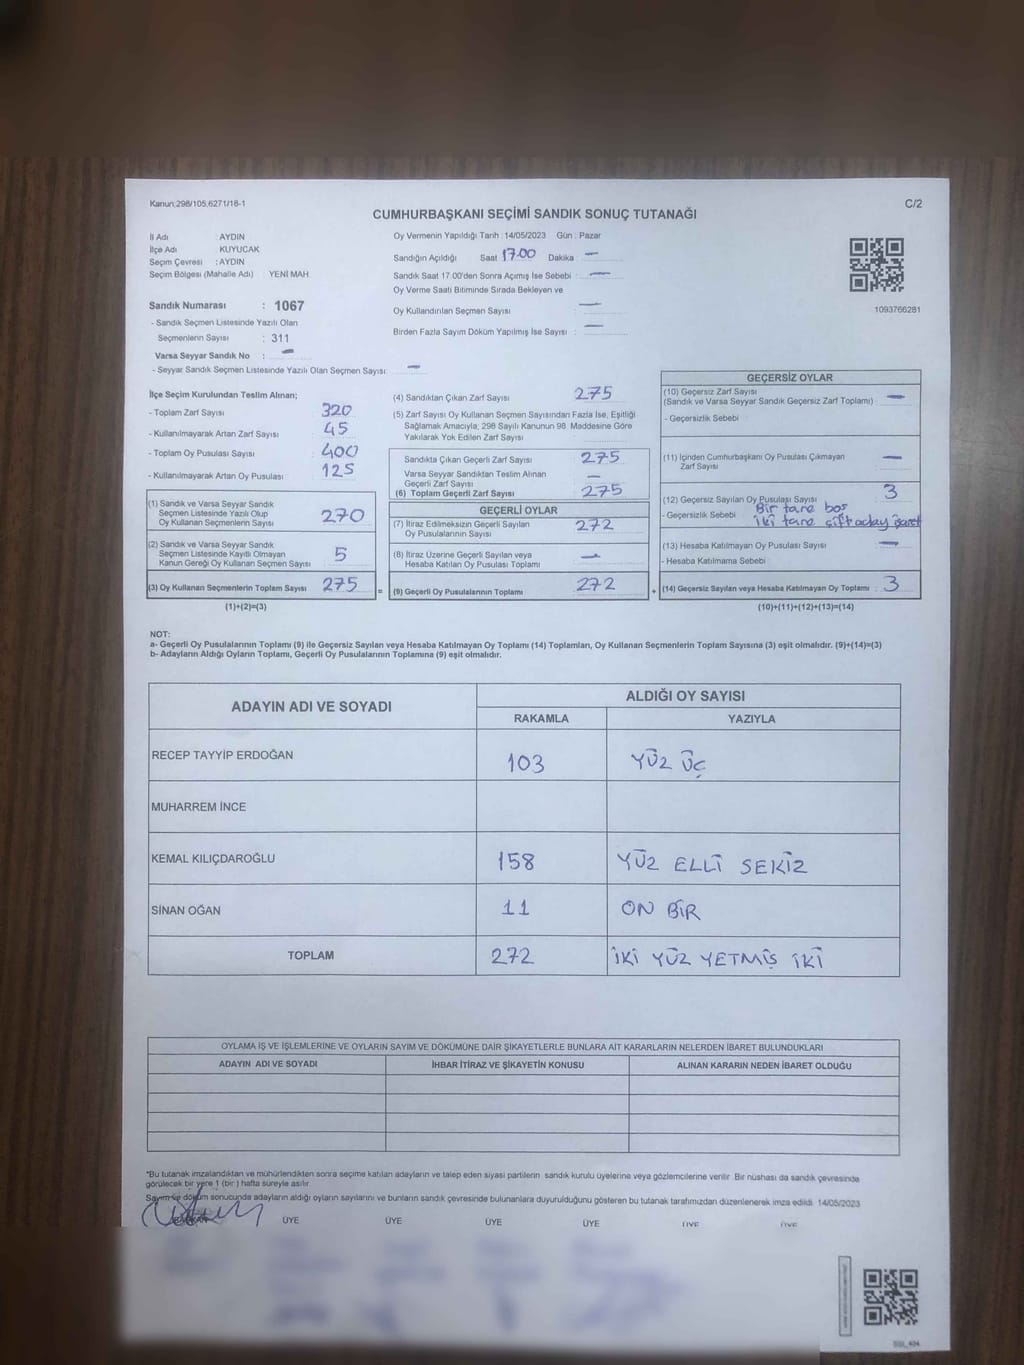 Kanun:298/105,6271/16-1
C/2
CUMHURBAŞKANI SEÇİMİ SANDIK SONUÇ TUTANAĞI
İl Adı : AYDIN
İlçe Adı : KUYUCAK
Seçim Çevresi : AYDIN
Seçim Bölgesi (Mahalle Adı) : YENİ MAH.
Sandık Numarası : 1067
- Sandık Seçmen Listesinde Yazılı Olan
Seçmenlerin Sayısı : 311
Varsa Seyyar Sandık No : —
- Seyyar Sandık Seçmen Listesinde Yazılı Olan Seçmen Sayısı: —
Oy Vermenin Yapıldığı Tarih : 14/05/2023 Gün : Pazar
Sandığın Açıldığı Saat 17.00 Dakika —
Sandık Saat 17.00'den Sonra Açımış İse Sebebi : —
Oy Verme Saati Bitiminde Sırada Bekleyen ve
Oy Kullandırılan Seçmen Sayısı : —
Birden Fazla Sayım Döküm Yapılmış İse Sayısı : —
1093766281
İlçe Seçim Kurulundan Teslim Alınan;
- Toplam Zarf Sayısı 320
- Kullanılmayarak Artan Zarf Sayısı 45
- Toplam Oy Pusulası Sayısı 400
- Kullanılmayarak Artan Oy Pusulası 125
(1) Sandık ve Varsa Seyyar Sandık
Seçmen Listesinde Yazılı Olup
Oy Kullanan Seçmenlerin Sayısı 270
(2) Sandık ve Varsa Seyyar Sandık
Seçmen Listesinde Kayıtlı Olmayan
Kanun Gereği Oy Kullanan Seçmen Sayısı 5
(3) Oy Kullanan Seçmenlerin Toplam Sayısı 275
(1)+(2)=(3)
(4) Sandıktan Çıkan Zarf Sayısı 275
(5) Zarf Sayısı Oy Kullanan Seçmen Sayısından Fazla İse, Eşitliği
Sağlamak Amacıyla, 298 Sayılı Kanunun 98. Maddesine Göre
Yakılarak Yok Edilen Zarf Sayısı
Sandıkta Çıkan Geçerli Zarf Sayısı 275
Varsa Seyyar Sandıktan Teslim Alınan
Geçerli Zarf Sayısı —
(6) Toplam Geçerli Zarf Sayısı 275
GEÇERLİ OYLAR
(7) İtiraz Edilmeksizin Geçerli Sayılan
Oy Pusulalarının Sayısı 272
(8) İtiraz Üzerine Geçerli Sayılan veya
Hesaba Katılan Oy Pusulası Toplamı —
(9) Geçerli Oy Pusulalarının Toplamı 272
GEÇERSİZ OYLAR
(10) Geçersiz Zarf Sayısı
(Sandık ve Varsa Seyyar Sandık Geçersiz Zarf Toplamı) —
- Geçersizlik Sebebi :
(11) İçinden Cumhurbaşkanı Oy Pusulası Çıkmayan
Zarf Sayısı —
(12) Geçersiz Sayılan Oy Pusulası Sayısı 3
- Geçersizlik Sebebi : Bir tane boş
iki tane çift aday işaret
(13) Hesaba Katılmayan Oy Pusulası Sayısı —
- Hesaba Katılmama Sebebi :
(14) Geçersiz Sayılan veya Hesaba Katılmayan Oy Toplamı : 3
(10)+(11)+(12)+(13)=(14)
NOT:
a- Geçerli Oy Pusulalarının Toplamı (9) ile Geçersiz Sayılan veya Hesaba Katılmayan Oy Toplamı (14) Toplamları, Oy Kullanan Seçmenlerin Toplam Sayısına (3) eşit olmalıdır. (9)+(14)=(3)
b- Adayların Aldığı Oyların Toplamı, Geçerli Oy Pusulalarının Toplamına (9) eşit olmalıdır.
ADAYIN ADI VE SOYADI
ALDIĞI OY SAYISI
RAKAMLA YAZIYLA
RECEP TAYYİP ERDOĞAN 103 YÜZ ÜÇ
MUHARREM İNCE
KEMAL KILIÇDAROĞLU 158 YÜZ ELLİ SEKİZ
SİNAN OĞAN 11 ON BİR
TOPLAM 272 İKİ YÜZ YETMİŞ İKİ
OYLAMA İŞ VE İŞLEMLERİNE VE OYLARIN SAYIM VE DÖKÜMÜNE DAİR ŞİKAYETLERLE BUNLARA AİT KARARLARIN NELERDEN İBARET BULUNDUKLARI
ADAYIN ADI VE SOYADI İHBAR İTİRAZ VE ŞİKAYETİN KONUSU ALINAN KARARIN NEDEN İBARET OLDUĞU
*Bu tutanak imzalandıktan ve mühürlendikten sonra seçime katılan adayların ve talep eden siyasi partilerin sandık kurulu üyelerine veya gözlemcilerine verilir. Bir nüshası da sandık çevresinde
görülecek bir yere 1 (bir) hafta süreyle asılır.
Sayım ve döküm sonucunda adayların aldığı oyların sayılarını ve bunların sandık çevresinde bulunanlara duyurulduğunu gösteren bu tutanak tarafımızdan düzenlenerek imza edildi. 14/05/2023
BAŞKAN ÜYE ÜYE ÜYE ÜYE ÜYE ÜYE